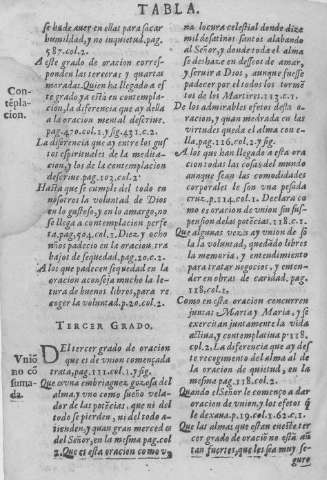 TABLA.
se ha de auer en ellas para sacar
humildad, y no inquietud. pag.
587. col. 2.
A este grado de oracion corresponden
las terceras y quartas
moradas. Quien ha llegado a este
grado ya està en contemplacion,
la diferencia que ay della
a la oracion mental descriue.
pag. 470. col. 2. y sig. 431. c. 2.
La diferencia que ay entre los gustos
espirituales de la meditacion,
y los de la contemplacion
descriue. pag. 103. col. 2.
Hasta que se cumple del todo en
nosotros la voluntad de Dios
en lo gustoso, y en lo amargo, no
se llega a contemplacion perfeta,
pag. 504. col. 2. Diez y ocho
años padecio en la oracion trabajos
de sequedad, pag. 20. c. 2.
A los que padecen sequedad en la
oracion aconseja mucho la letura
de buenos libros, para recoger
la voluntad. p. 20. col. 2.
Contẽplacion.
TERCER GRADO.
Vniõ
no cõ
sumada.
DEl tercer grado de oracion
que es de vnion començada
trata, pag. 111. col. 1. y sig.
Que es vna embriaguez gozosa del
alma, y vno como sueño velador
de las potẽcias, que ni del
todo se pierden, ni del todo atienden,
y quan gran merced es
del Señor, en la mesma pag. col
2. Que es esta oracion como vna
locura celestial donde dize
mil desatinos santos alabando
al Señor, y donde toda el alma
se deshaze en desseos de amar,
y seruir a Dios, aunque fuesse
padecer por el todos los tormẽtos
de los Martires. 113. c. 1.
De los admirables efetos desta oracion,
y quan medrada en las
virtudes queda el alma con ella.
pag. 116. col. 2. y sig.
A los que han llegado a esta oracion
todas las cosas del mundo
aunque sean las comodidades
corporales le son vna pesada
cruz. p. 114. col. 1. Declara como
es oracion de vnion sin suspension
de las potẽcias, 118. c. 1.
Que algunas vezes ay vnion de sola
la voluntad, quedãdo libres
la memoria, y entendimiento
para tratar negocios, y entender
en obras de caridad. pag.
118. col. 1.
Como en esta oracion concurren
juntas Marta y Maria, y se
exercitan juntamente la vida
actiua, y contemplatiua p. 118.
col. 2. La diferencia que ay deste
recogimento del alma al de
la oracion de quietud, en la
mesma pag. 118. col. 2.
Quando el Señor le començo a dar
oracion de vnion, y los efetos q̃
le dexaua. p. 19. col. 1. 62. c. 1.
Que las almas que estan en este tercer
grado de oraciõ no està autan
fuertes, que les sea muy
segure